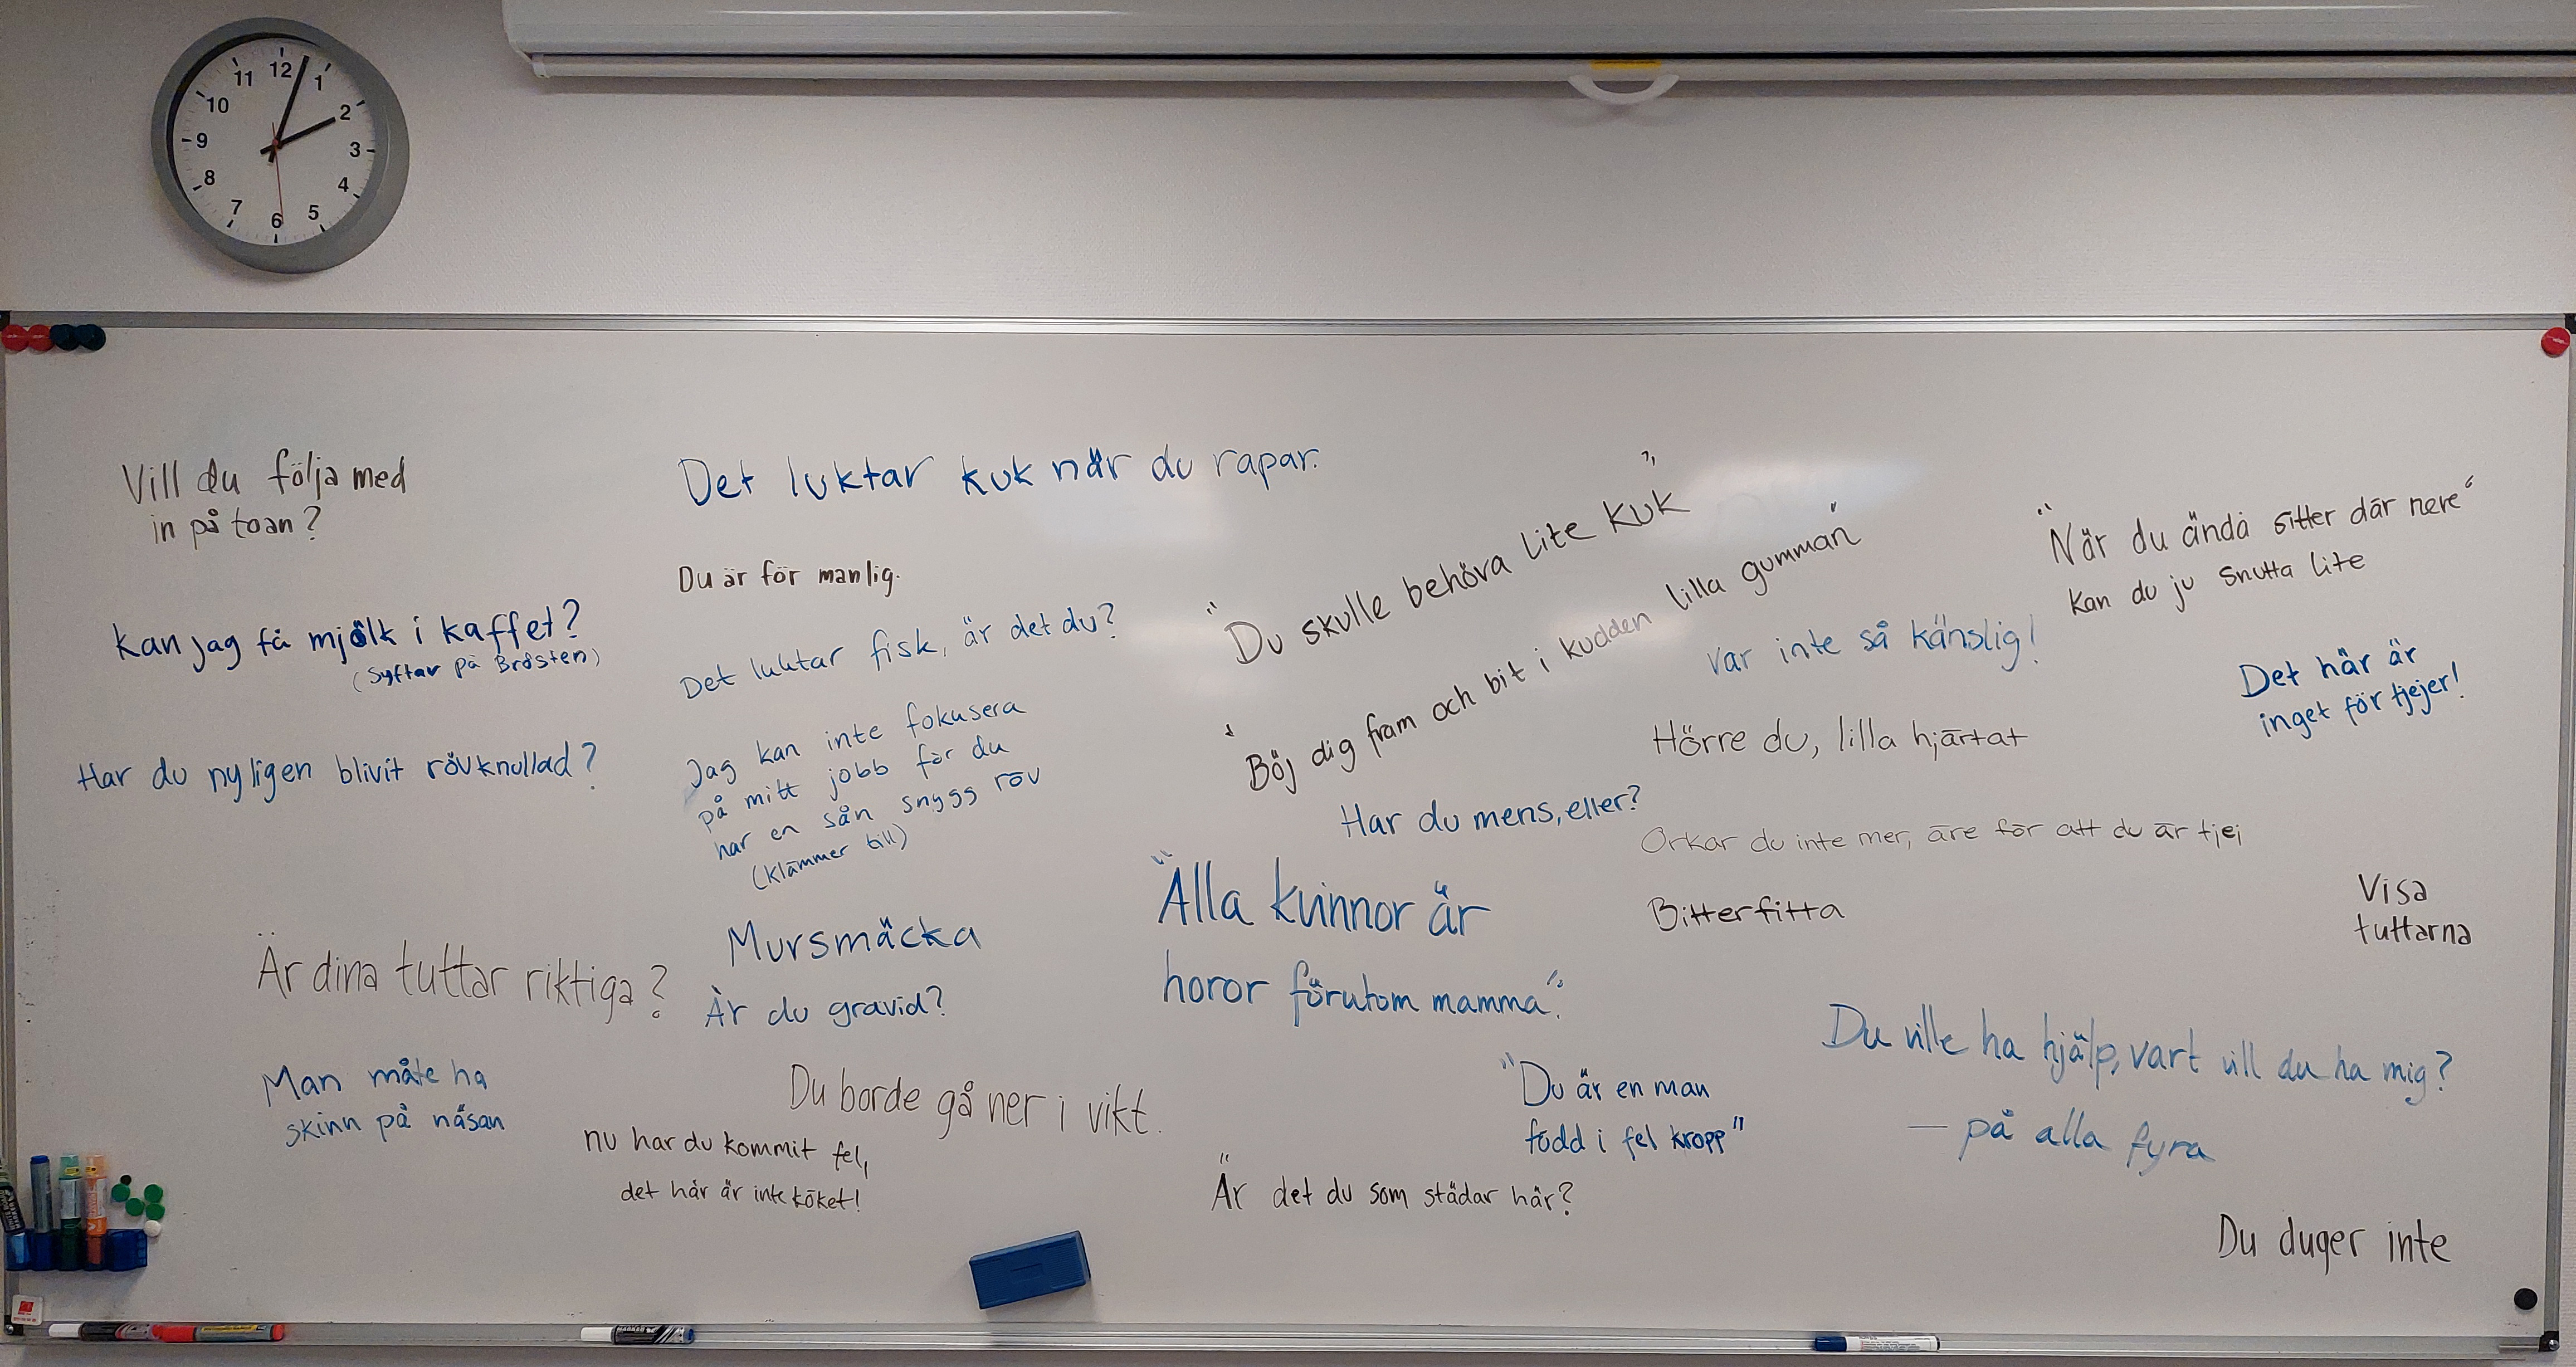 12
1
2
3
4
5
6
7
8
9
10
11
Vill du följa med
in på toan?
Kan jag få mjölk i kaffet?
(syftar på Brösten)
Har du nyligen blivit rövknullad?
Är dina tuttar riktiga?
Man måte ha
skinn på näsan
Det luktar kuk när du rapar.
Du är för manlig.
Det luktar fisk, är det du?
Jag kan inte fokusera
på mitt jobb för du
har en sån snygg röv
(klämmer till)
Mursmäcka
Är du gravid?
Du borde gå ner i vikt.
nu har du kommit fel,
det här är inte köket!
"Du skulle behöva lite KUK"
"Böj dig fram och bit i kudden lilla gumman"
Har du mens, eller?
"Alla kvinnor är
horor förutom mamma".
"Du är en man
född i fel kropp"
Är det du som städar här?
"När du ändå sitter där nere"
kan du ju snutta lite
Var inte så känslig!
Det här är
inget för tjejer!
Hörre du, lilla hjärtat
Orkar du inte mer, äre för att du är tjej
Bitterfitta
Visa
tuttarna
Du ville ha hjälp, vart vill du ha mig?
— på alla fyra
Du duger inte